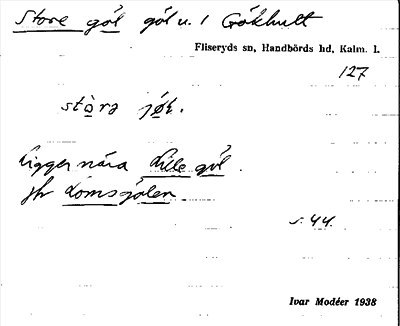 Store göl göl u. / Gökhult
Fliseryds sn, Handbörds hd, Kalm. l.
127
stòra jøl.
Ligger nära Lille göl.
jfr Lomsgölen
s. 44.
Ivar Modéer 1938